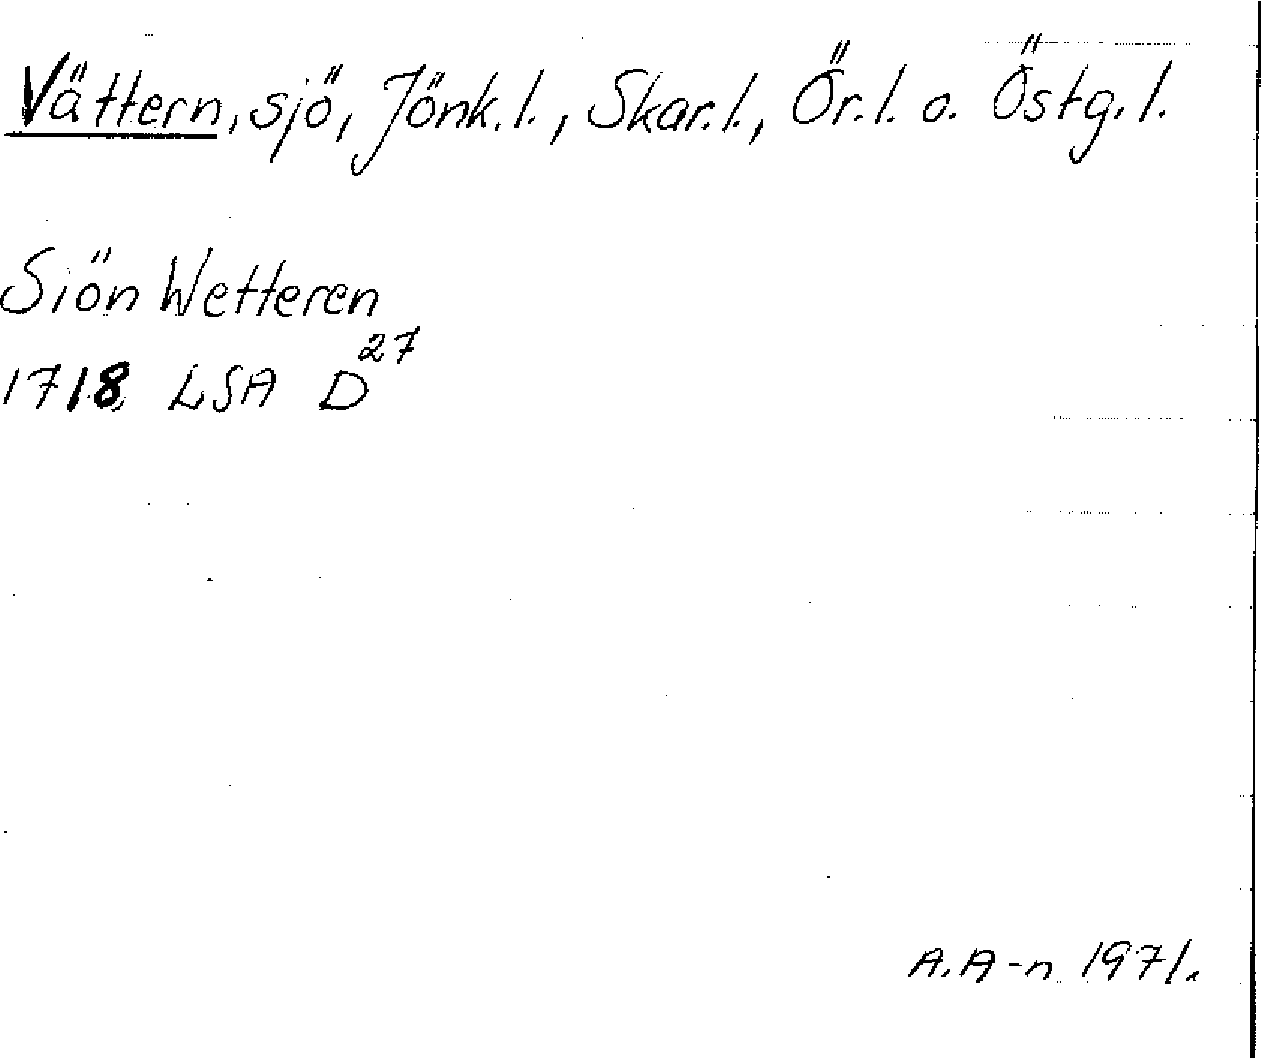 Vättern, sjö, Jönk.l., Skar.l., Ör.l. o. Östg.l.
Siön Wetteren
1718 LSA D²⁷
A.A-n 1971.